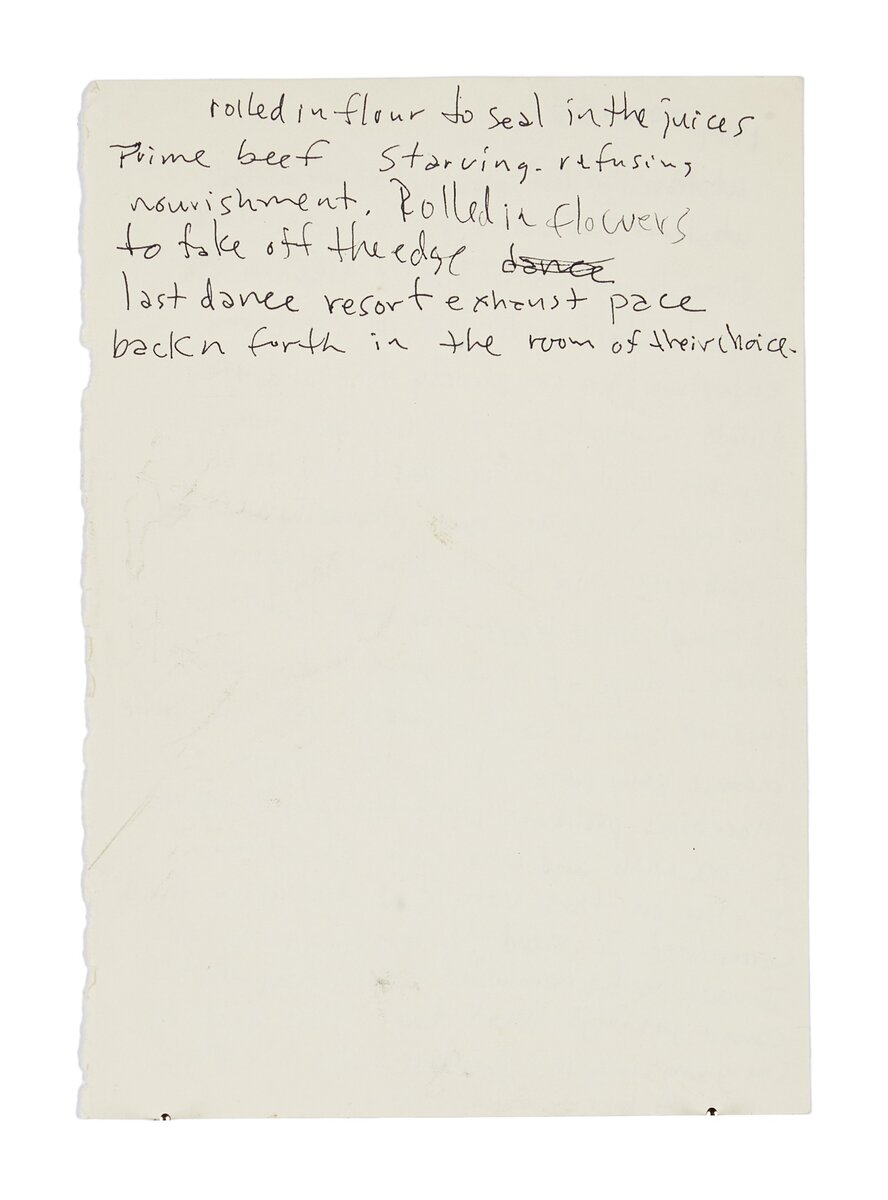 rolled in flour to seal in the juices
Prime beef Starving. refusing
nourishment. Rolled in flowers
to take off the edge dance
last dance resort exhaust pace
back n forth in the room of their choice.